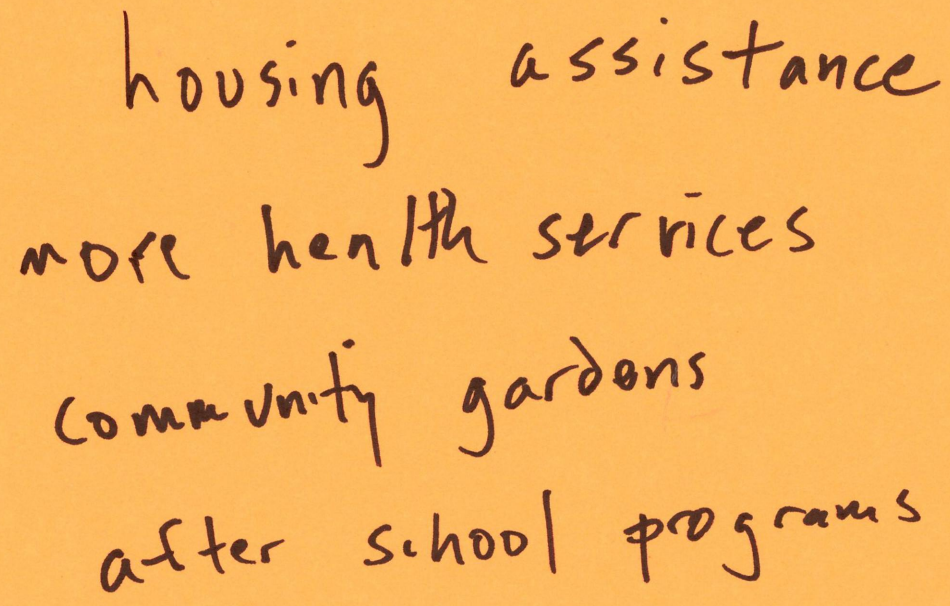 housing assistance
more health services
community gardens
after school programs